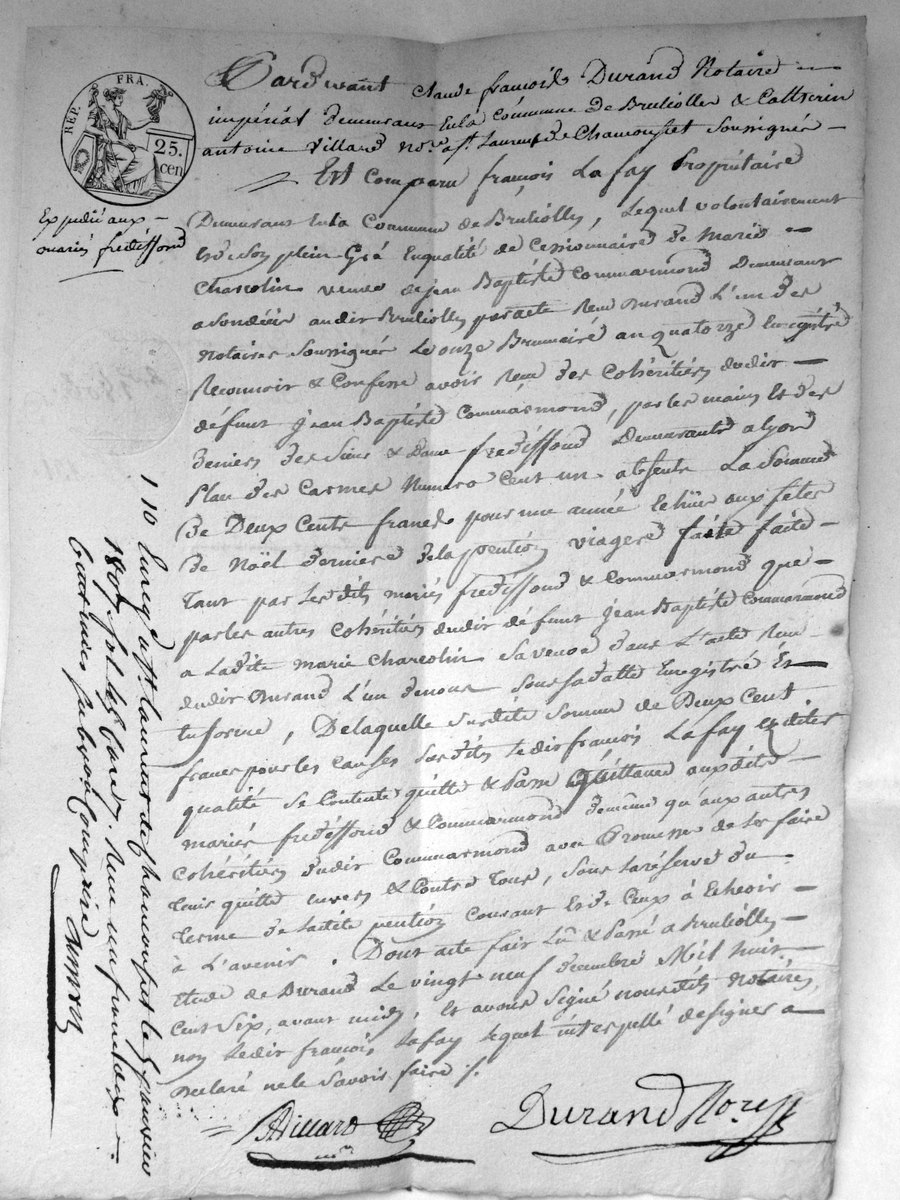 REP. FRA.
25.
cen
Expedié aux
mariés fredissond
Pardevant Claude françois Durand Notaire
impérial demeurant en la Commune de Brulioller & Cattherin
antoine Villard nore. a st. Laurent de Chamousset Soussignés
Est Comparu françois Lafay Propriétaire
Demeurant en la Commune de Briliolles, Lequel volontairement
et de Son plein Gré En qualité de Cessionnaire de Marie
Charcolin veuve de jean Baptiste Commarmond Demeurant
audit Bruliolles par acte Reçu Durand L'un des
Notaires Soussignés Le onze Brumaire an quatorze Enregistré
Reconnoit & Confesse avoir Reçu des Cohéritiers dudit
défunt Jean Baptiste Commarmond, par les mains et des
deniers des Sieur & Dame fredissond Demeurants a Lyon
Place des Carmes Numero Cent un absents La Somme
De Deux Cents francs pour une année Echüe aux fêtes
de Noël derniere de la pention viagere faite
tant par Lesdits mariés fredissond & Commarmond que
par les autres Cohéritiers dudit défunt Jean Baptiste Commarmond
a Ladite Marie Charcolin Sa veuve dans L'acte Reçu
dudit Durand L'un de nous Sous sa datte Enregistré Et
En forme, De laquelle Susdite Somme de Deux Cent
francs pour les Causes Susdites ledit francois Lafay
qualité Se Contente quitte & Passe Quittance auxdits
mariés fredissond & Commarmond de même qu'aux autres
Cohéritiers dudit Commarmond avec Promesse de Les faire
tenir quitte envers & Contre Tous, Sous la réserve du
terme de ladite pention Courant et de Ceux à Echeoir
à L'avenir. Dont acte fait Lû & Passé a Bruliolles
Etude de Durand Le vingt neuf decembre Mil huit
Cent Six, avant midy, Et avons Signé nousdits Notaires,
non Ledit francois Lafay Lequel interpellé de signer a
Declaré ne le Savoir faire ./.
Villard
Durand Nore
110 Enreg. a st. Laurent de Chamousset le 9 janvier
1807 fol. Reçu un franc deux
centimes Subvon. Comprise